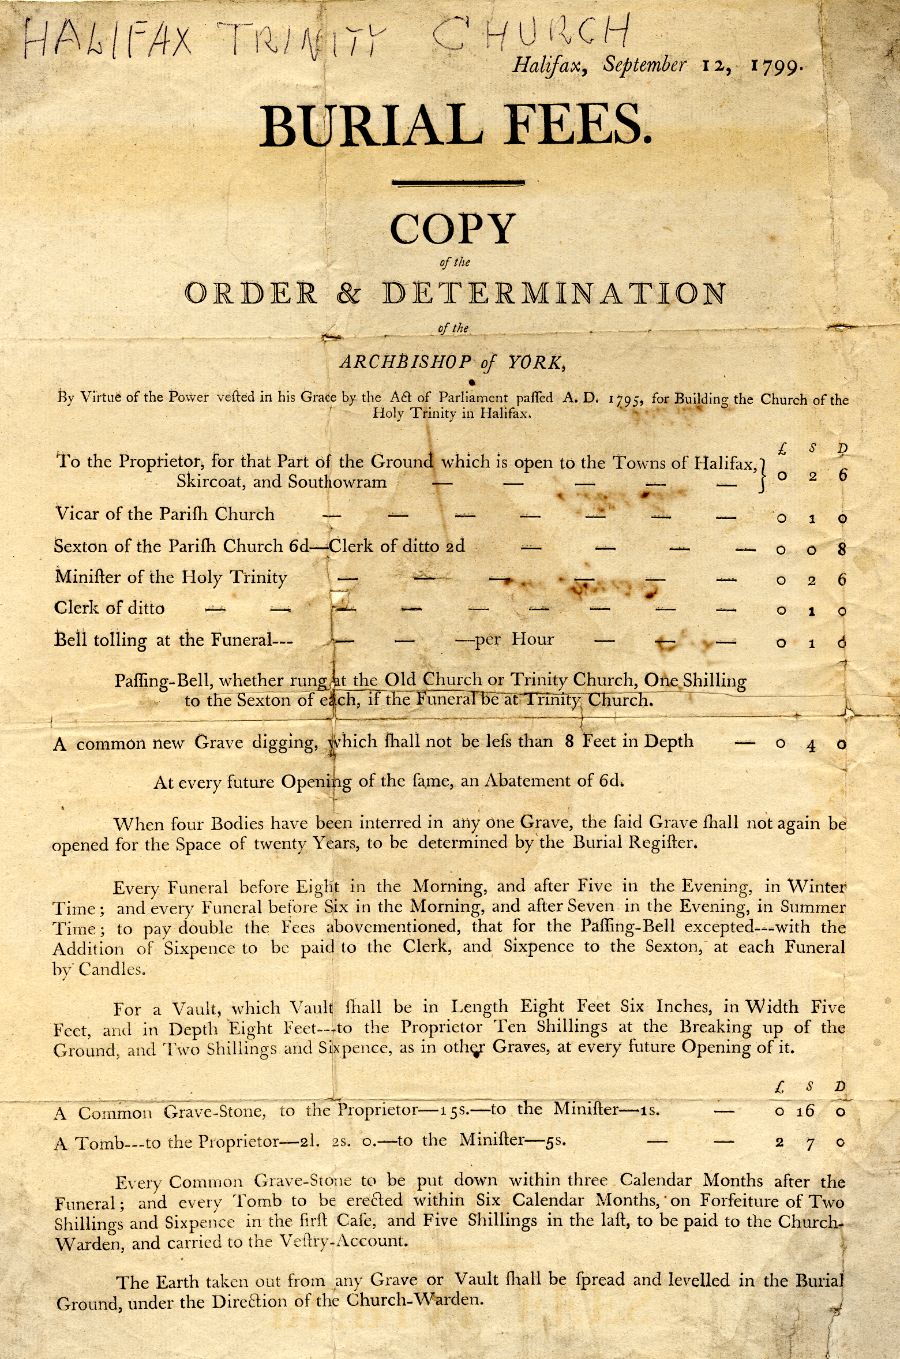 HALIFAX TRINITY CHURCH
Halifax, September 12, 1799.
BURIAL FEES.
COPY
of the
ORDER & DETERMINATION
of the
ARCHBISHOP of YORK,
By Virtue of the Power veſted in his Grace by the Act of Parliament paſſed A. D. 1795, for Building the Church of the
Holy Trinity in Halifax.
£ S D
To the Proprietor, for that Part of the Ground which is open to the Towns of Halifax,
Skircoat, and Southowram — — — — — } 0 2 6
Vicar of the Pariſh Church — — — — — — — 0 1 0
Sexton of the Pariſh Church 6d—Clerk of ditto 2d — — — — 0 0 8
Miniſter of the Holy Trinity — — — — — — 0 2 6
Clerk of ditto — — — — — — — — 0 1 0
Bell tolling at the Funeral--- — — —per Hour — — — 0 1 6
Paſſing-Bell, whether rung at the Old Church or Trinity Church, One Shilling
to the Sexton of each, if the Funeral be at Trinity Church.
A common new Grave digging, which ſhall not be leſs than 8 Feet in Depth — 0 4 0
At every future Opening of the ſame, an Abatement of 6d.
When four Bodies have been interred in any one Grave, the ſaid Grave ſhall not again be
opened for the Space of twenty Years, to be determined by the Burial Regiſter.
Every Funeral before Eight in the Morning, and after Five in the Evening, in Winter
Time; and every Funeral before Six in the Morning, and after Seven in the Evening, in Summer
Time; to pay double the Fees abovementioned, that for the Paſſing-Bell excepted---with the
Addition of Sixpence to be paid to the Clerk, and Sixpence to the Sexton, at each Funeral
by Candles.
For a Vault, which Vault ſhall be in Length Eight Feet Six Inches, in Width Five
Feet, and in Depth Eight Feet---to the Proprietor Ten Shillings at the Breaking up of the
Ground, and Two Shillings and Sixpence, as in other Graves, at every future Opening of it.
£ S D
A Common Grave-Stone, to the Proprietor—15s.—to the Miniſter—1s. — 0 16 0
A Tomb---to the Proprietor—2l. 2s. 0.—to the Miniſter—5s. — — 2 7 0
Every Common Grave-Stone to be put down within three Calendar Months after the
Funeral; and every Tomb to be erected within Six Calendar Months, on Forfeiture of Two
Shillings and Sixpence in the firſt Caſe, and Five Shillings in the laſt, to be paid to the Church-
Warden, and carried to the Veſtry-Account.
The Earth taken out from any Grave or Vault ſhall be ſpread and levelled in the Burial
Ground, under the Direction of the Church-Warden.